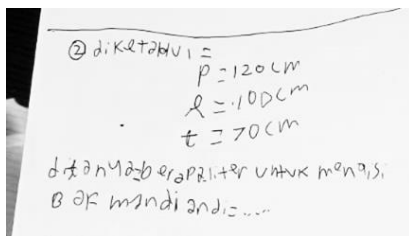 ② diketahui =
p = 120 cm
l = 100 cm
t = 70 cm
ditanya = berapa liter untuk mengisi
Bak mandi andi = .....